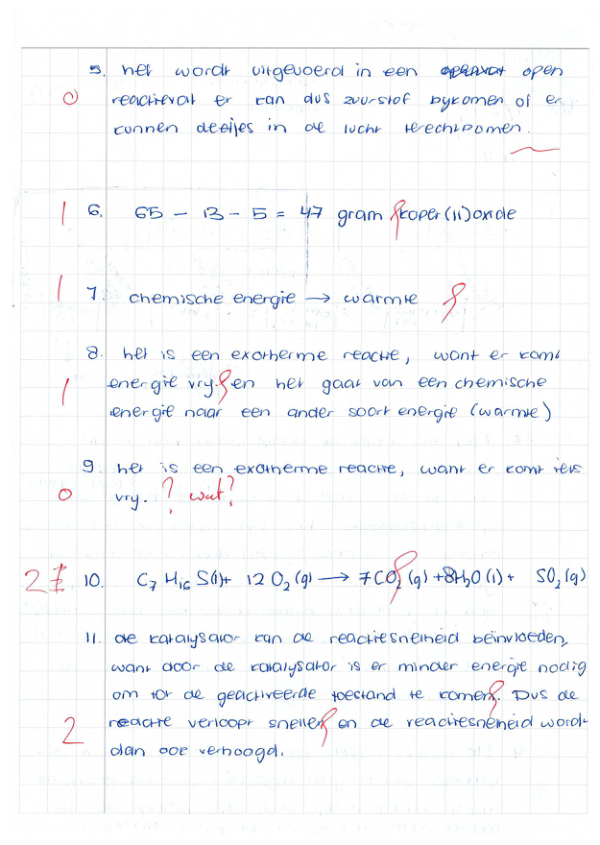 5. het wordt uitgevoerd in een open
0 reactievat er kan dus zuurstof bijkomen of er
kunnen deeltjes in de lucht terechtkomen.
1 6. 65 - 13 - 5 = 47 gram koper(II)oxide
1 7. chemische energie → warmte
8. het is een exotherme reactie, want er komt
1 energie vrij. en het gaat van een chemische
energie naar een ander soort energie (warmte)
9. het is een exotherme reactie, want er komt iets
0 vrij. ? wat?
2 10. C7 H16 S(l) + 12 O2 (g) → 7 CO2 (g) + 8H2O (l) + SO2 (g)
11. de katalysator kan de reactiesnelheid beïnvloeden,
want door de katalysator is er minder energie nodig
om tot de geactiveerde toestand te komen. Dus de
2 reactie verloopt sneller en de reactiesnelheid wordt
dan ook verhoogd.